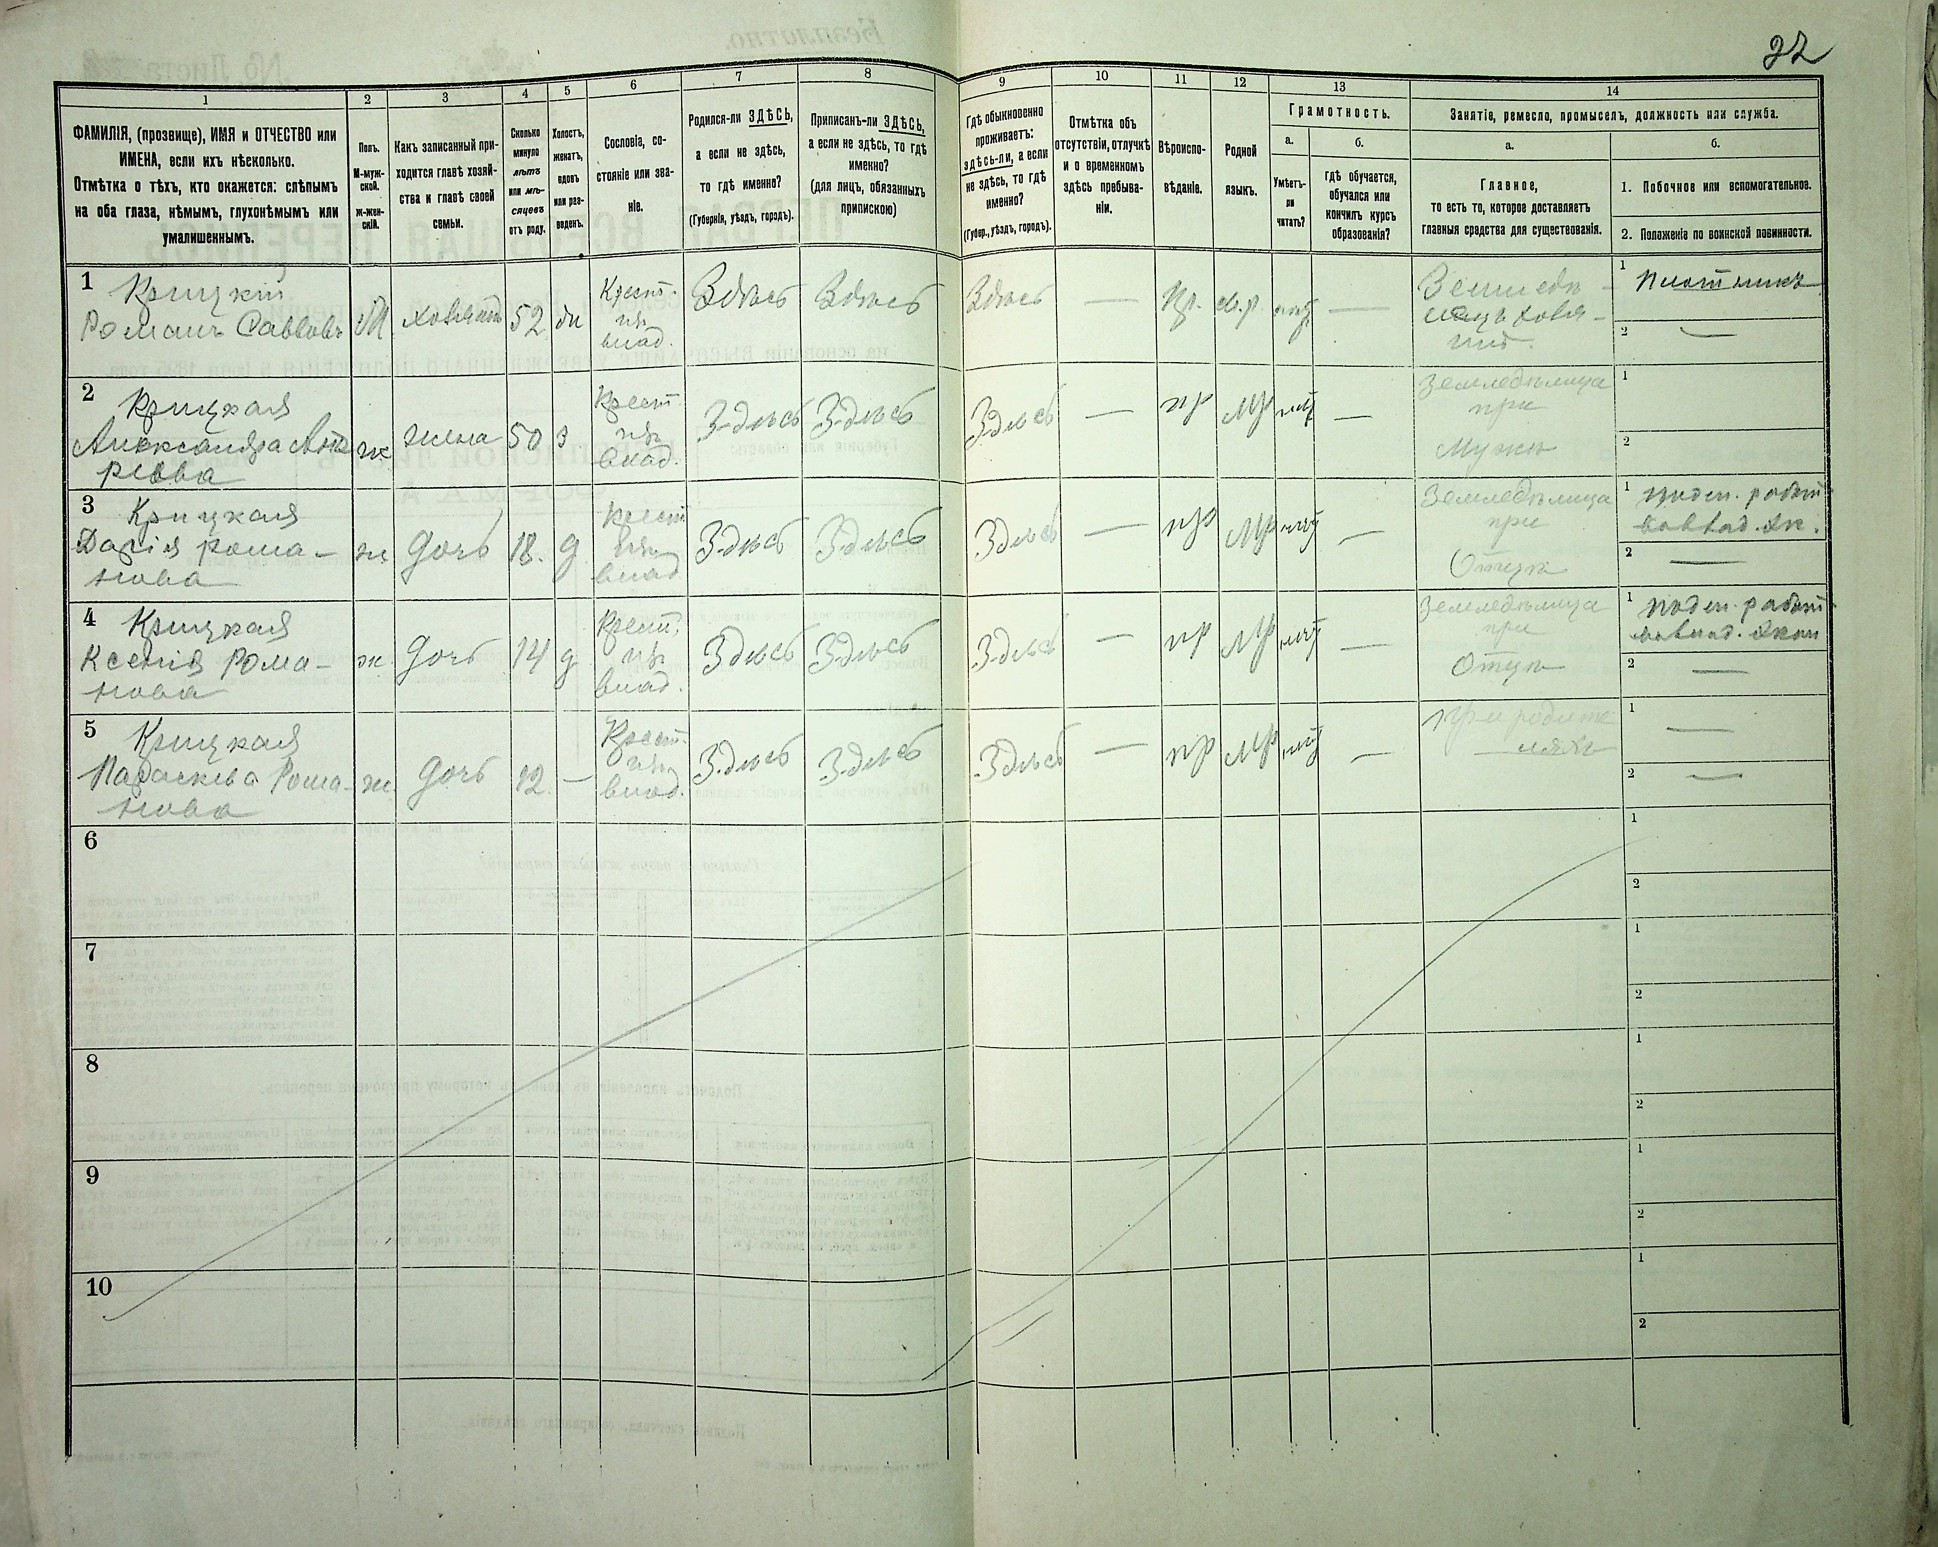 32
1
2
3
4
5
6
7
8
9
10
11
12
13
14
ФАМИЛІЯ, (прозвище), ИМЯ и ОТЧЕСТВО или
ИМЕНА, если ихъ нѣсколько.
Отмѣтка о тѣхъ, кто окажется: слѣпымъ
на оба глаза, нѣмымъ, глухонѣмымъ или
умалишеннымъ.
Полъ.
М-муж-
ской.
ж-жен-
скій.
Какъ записанный при-
ходится главѣ хозяй-
ства и главѣ своей
семьи.
Сколько
минуло
лѣтъ
или мѣ-
сяцевъ
отъ роду.
Холостъ,
женатъ,
вдовъ
или раз-
веденъ.
Сословіе, со-
стояніе или зва-
ніе.
Родился-ли ЗДѢСЬ,
а если не здѣсь,
то гдѣ именно?
(Губернія, уѣздъ, городъ).
Приписанъ-ли ЗДѢСЬ,
а если не здѣсь, то гдѣ
именно?
(для лицъ, обязанныхъ
припискою)
Гдѣ обыкновенно
проживаетъ:
здѣсь-ли, а если
не здѣсь, то гдѣ
именно?
(Губер., уѣздъ, городъ).
Отмѣтка объ
отсутствіи, отлучкѣ
и о временномъ
здѣсь пребыва-
ніи.
Вѣроиспо-
вѣданіе.
Родной
языкъ.
Грамотность.
а.
Умѣетъ-
ли
читать?
б.
гдѣ обучается,
обучался или
кончилъ курсъ
образованія?
Занятіе, ремесло, промыселъ, должность или служба.
а.
Главное,
то есть то, которое доставляетъ
главныя средства для существованія.
б.
1. Побочное или вспомогательное.
2. Положеніе по воинской повинности.
1
Крицкій
Романъ Саввовъ
М
хозяинъ
52
Крест.
изъ
влад.
Здѣсь
Здѣсь
Здѣсь
—
Пр.
м.р.
нѣтъ
—
Земледѣ-
лецъ хозя-
инъ.
1 Плотникъ
2 —
2
Крицкая
Александра
ж
жена
50
з
Крест.
изъ
влад.
Здѣсь
Здѣсь
Здѣсь
—
пр
МР
нѣтъ
—
Земледѣлица
при
Мужѣ
1
2
3
Крицкая
Дарія Рома-
нова
ж
дочь
18.
д
Крест
изъ
влад
Здѣсь
Здѣсь
Здѣсь
—
пр
МР
нѣтъ
—
Земледѣлица
при
Отцѣ
1 поден. работ
2 —
4
Крицкая
Ксенія Рома-
нова
ж.
дочь
14
д
Крест.
изъ
влад.
Здѣсь
Здѣсь
Здѣсь
—
пр
МР
нѣтъ
—
Земледѣлица
при
Отцѣ
1 поден. работ
2 —
5
Крицкая
Параскева Рома-
нова
ж.
дочь
12.
—
Крест.
изъ
влад.
Здѣсь
Здѣсь
Здѣсь
—
пр
МР
нѣтъ
—
при родите
ляхъ
1 —
2 —
6
1
2
7
1
2
8
1
2
9
1
2
10
1
2